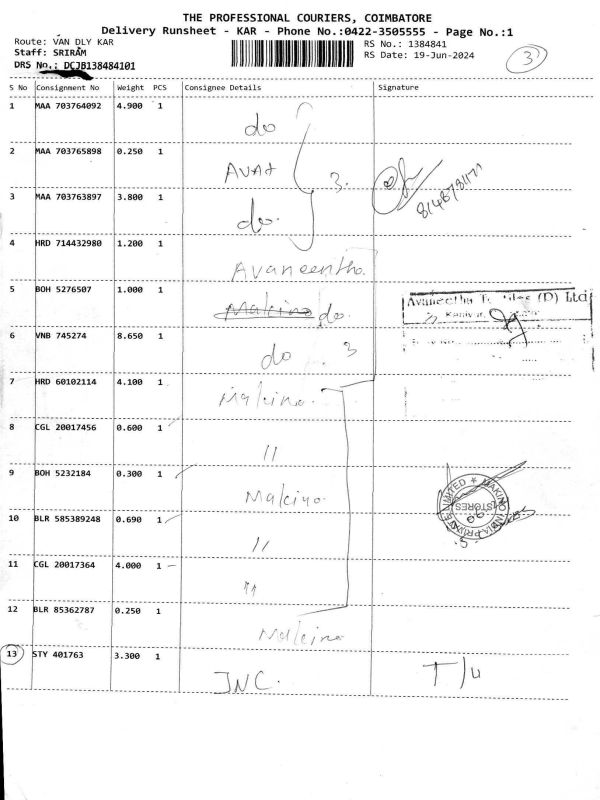 THE PROFESSIONAL COURIERS, COIMBATORE
Delivery Runsheet - KAR - Phone No.:0422-3505555 - Page No.:1
Route: VAN DLY KAR
RS No.: 1384841
Staff: SRIRAM
RS Date: 19-Jun-2024
DRS No.: DCJB138484101
3
S No Consignment No Weight PCS Consignee Details Signature
1 MAA 703764092 4.900 1 do
2 MAA 703765898 0.250 1 3.
3 MAA 703763897 3.800 1 do.
4 HRD 714432980 1.200 1 Avaneentha.
5 BOH 5276507 1.000 1 Makino do. Avaneetha (P) Ltd
6 VNB 745274 8.650 1 do 3
7 HRD 60102114 4.100 1 Makino.
8 CGL 20017456 0.600 1 //
9 BOH 5232184 0.300 1 Makino.
10 BLR 585389248 0.690 1 //
MAKINO INDIA PRIVATE LIMITED
STORES
11 CGL 20017364 4.000 1 "
12 BLR 85362787 0.250 1 Makino
13 STY 401763 3.300 1 JNC. T/u